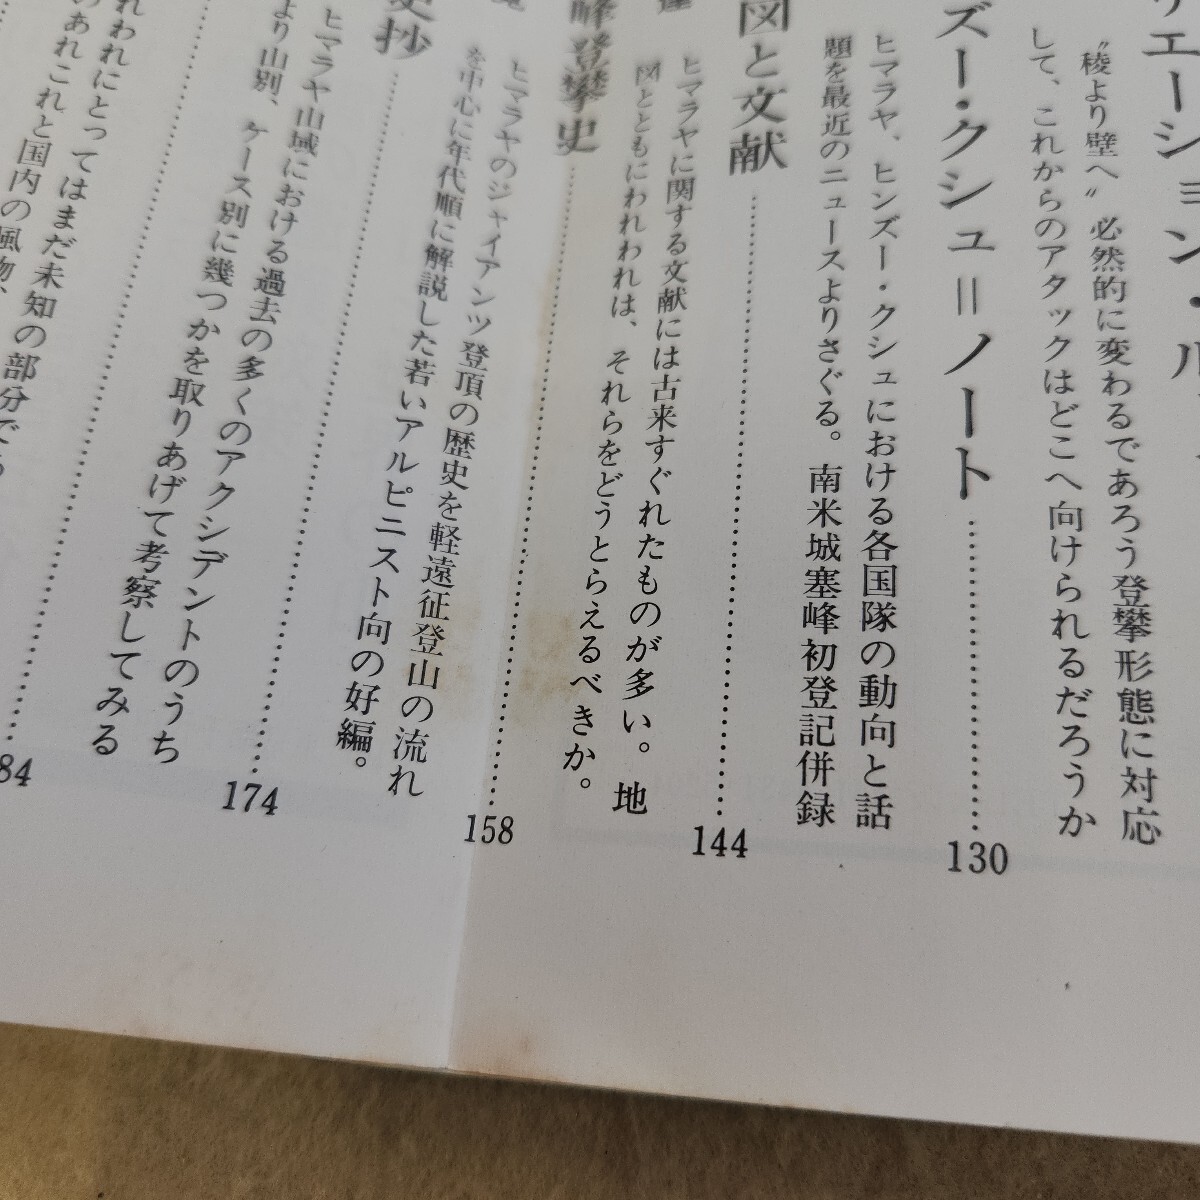 エーション・ル
〝稜より壁へ〟必然的に変わるであろう登攀形態に対応
して、これからのアタックはどこへ向けられるだろうか
ズー・クシュ＝ノート
130
ヒマラヤ、ヒンズー・クシュにおける各国隊の動向と話
題を最近のニュースよりさぐる。南米城塞峰初登記併録
図と文献
144
ヒマラヤに関する文献には古来すぐれたものが多い。地
図とともにわれわれは、それらをどうとらえるべきか。
峰登攀史
158
ヒマラヤのジャイアンツ登頂の歴史を軽遠征登山の流れ
を中心に年代順に解説した若いアルピニスト向の好編。
史抄
174
ヒマラヤ山域における過去の多くのアクシデントのうち
より山別、ケース別に幾つかを取りあげて考察してみる
84
われわれにとってはまだ未知の部分で
のあれこれと国内の風物、